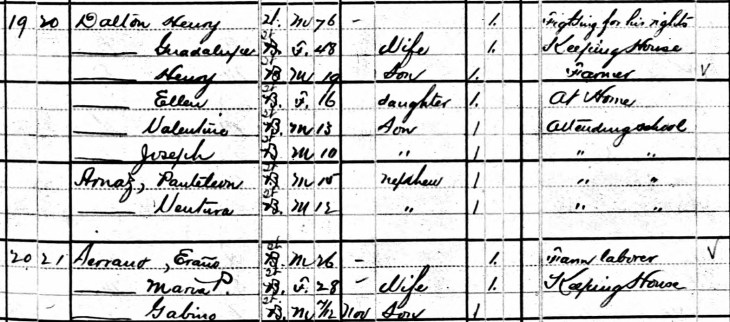 19 20 Dalton Henry W. M 76 – 1. Fighting for his rights
—— Guadalupe W B. F. 48 Wife 1. Keeping House
—— Henry W B M 19 Son 1. Farmer √
—— Ellen W B. F 16 daughter 1. At Home
—— Valentine W B. M 13 Son 1 Attending school
—— Joseph W B M 10 " 1 " "
Arnaz, Panteleon W B M 15 nephew 1 " "
—— Ventura W B. M 12 " 1 " "
20 21 Serrano, W B. M 26 – 1. Farm laborer √
—— Maria P. W B. F. 28 – Wife 1. Keeping House
—— Gabino W B. M 7/12 Nov Son 1